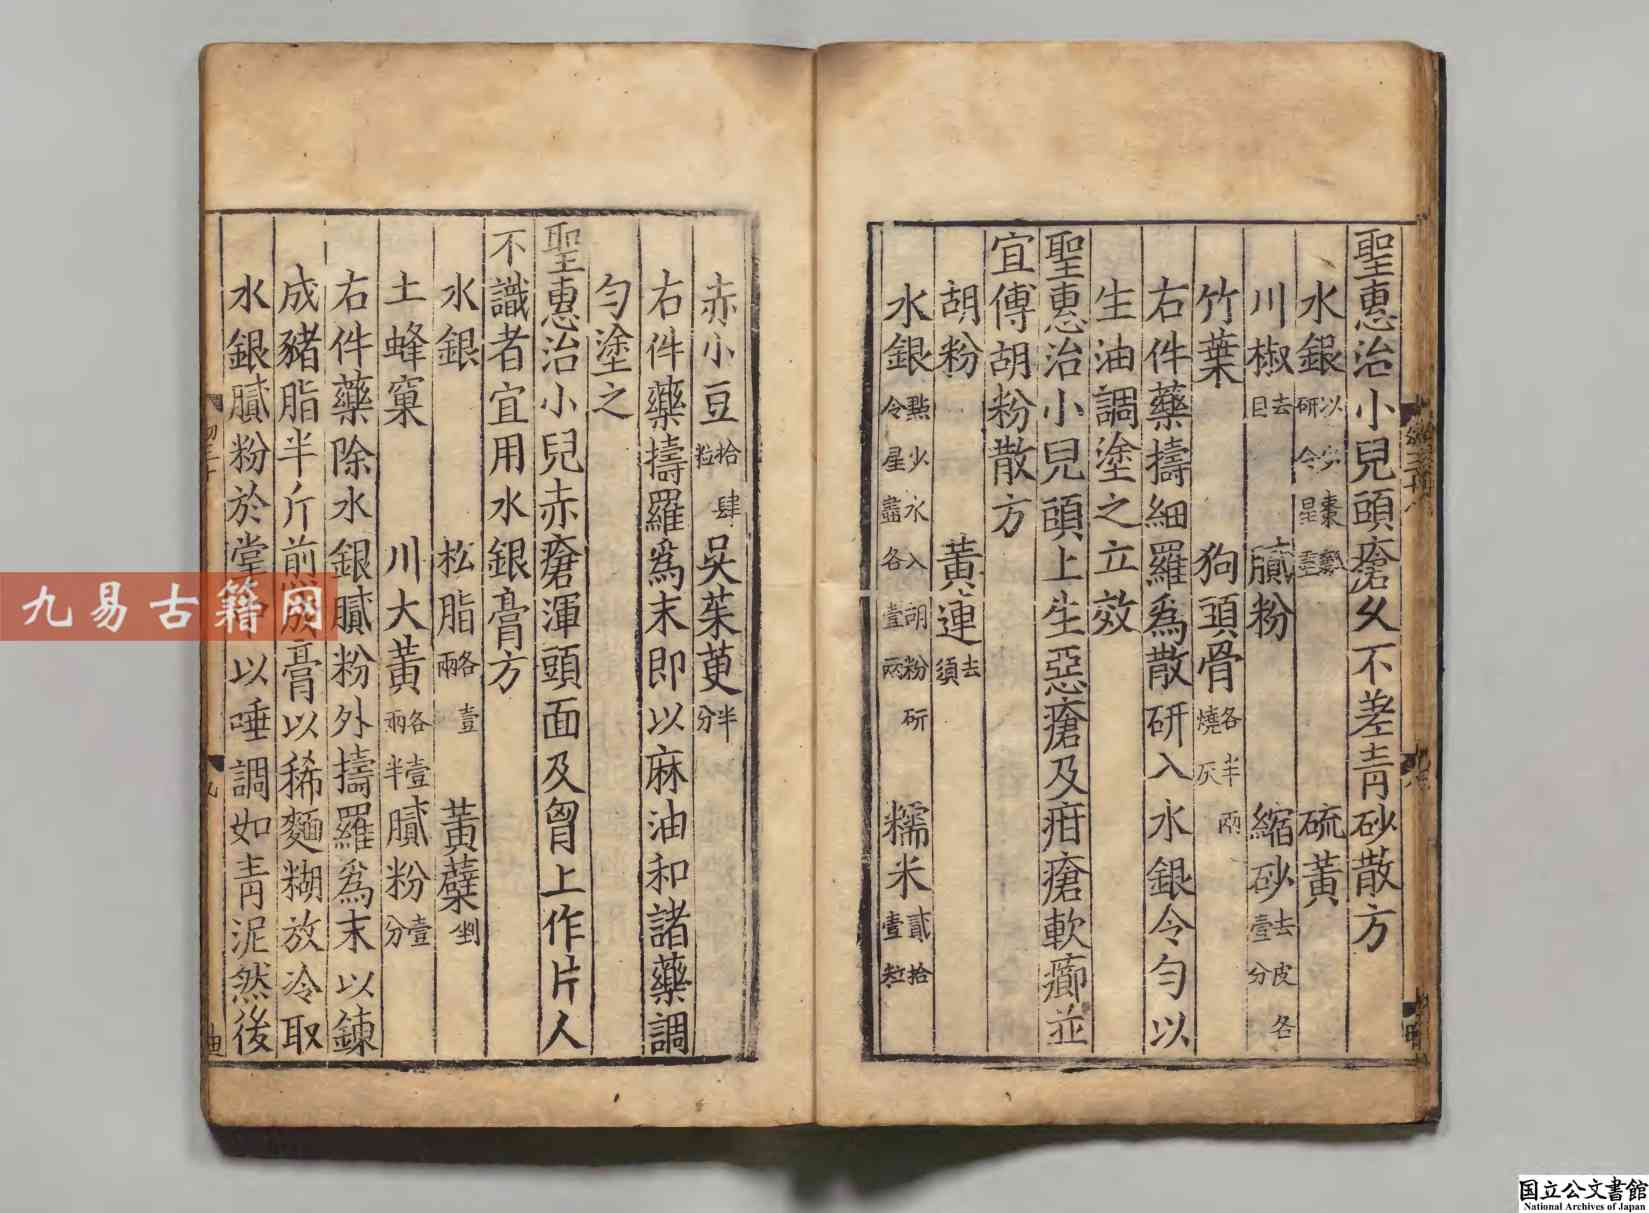 聖惠治小兒頭瘡久不差青砂散方
水銀 以少棗 研令星 硫黃
川椒 去目 膩粉 縮砂 去皮各壹分
竹葉 狗頭骨 各半兩燒灰
右件藥擣細羅爲散研入水銀令勻以
生油調塗之立效
聖惠治小兒頭上生惡瘡及疳瘡軟癤並
宜傅胡粉散方
胡粉 黃連 去須
水銀 點少水入胡粉研令星盡各壹兩 糯米 貳拾壹粒
赤小豆 拾肆粒 吳茱萸 半分
右件藥擣羅爲末即以麻油和諸藥調
勻塗之
聖惠治小兒赤瘡渾頭面及胷上作片人
不識者宜用水銀膏方
水銀 松脂 各壹兩 黃蘗
土蜂窠 川大黃 各壹兩半 膩粉 壹分
右件藥除水銀膩粉外擣羅爲末以鍊
成豬脂半斤煎成膏以稀麵糊放冷取
水銀膩粉於掌以唾調如青泥然後
九易古籍网
国立公文書館
National Archives of Japan